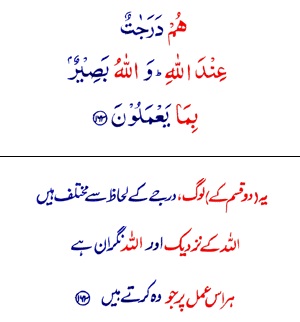 هُمْ دَرَجٰتٌ
عِنْدَ اللّٰهِ ؕ وَ اللّٰهُ بَصِيْرٌۢ
بِمَا يَعْمَلُوْنَ ﴿۱۶۳﴾
یہ (دو قسم کے) لوگ، درجے کے لحاظ سے مختلف ہیں
اللہ کے نزدیک اور اللہ نگران ہے
ہر اس عمل پر جو وہ کرتے ہیں ﴿۱۶۳﴾